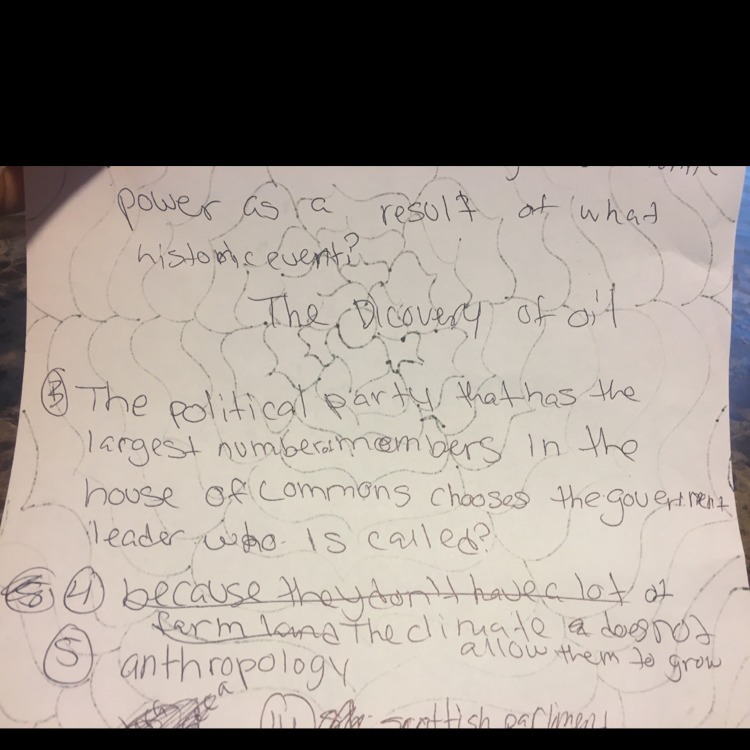 power as a result of what
historic event?
The Dicovery of oil
③ The political party that has the
largest number of members in the
house of commons chooses the goverment
leader who is called?
④ because they don't have a lot of
farm land The climate does not
allow them to grow
⑤ anthropology
scottish parliment